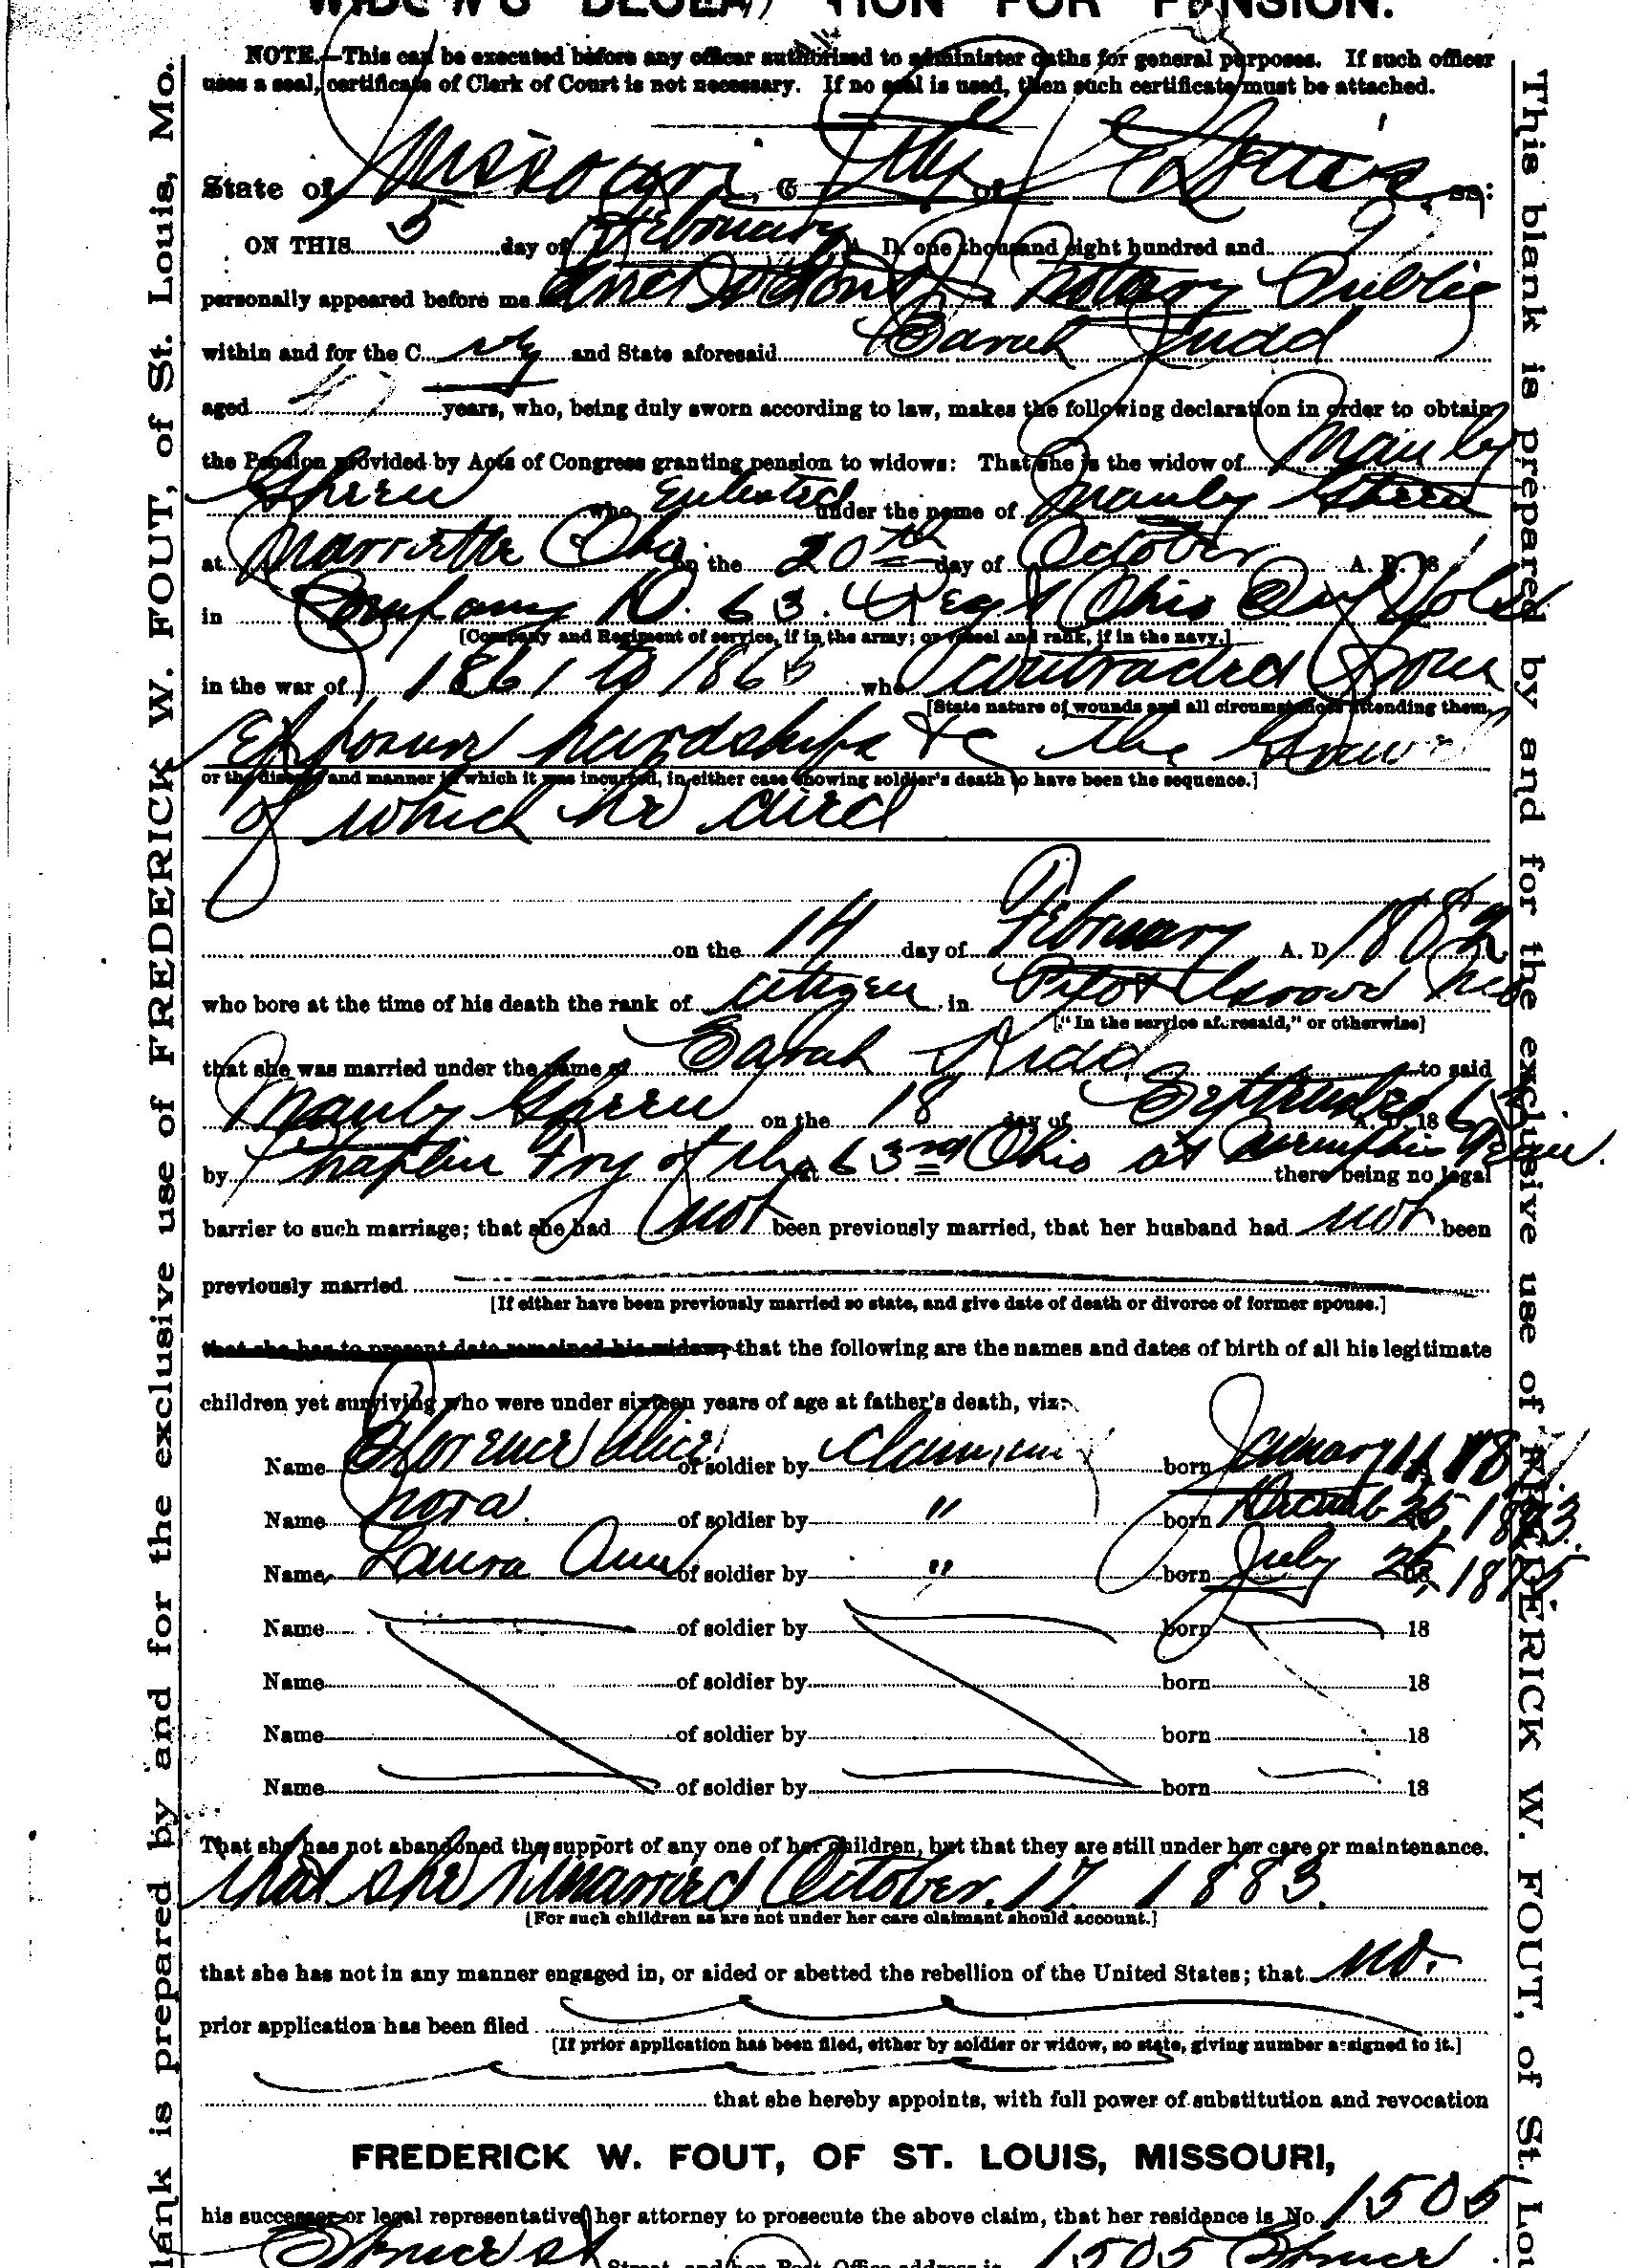 WIDOW'S DECLARATION FOR PENSION.
NOTE.—This can be executed before any officer authorized to administer oaths for general purposes. If such officer
uses a seal, certificate of Clerk of Court is not necessary. If no seal is used, then such certificate must be attached.
State of Missouri, C ity of St Louis, ss:
ON THIS 5 day of February A. D. one thousand eight hundred and 9
personally appeared before me a Notary Public
within and for the C ity and State aforesaid Sarah Judd
aged years, who, being duly sworn according to law, makes the following declaration in order to obtain
the Pension provided by Acts of Congress granting pension to widows: That she is the widow of Manly
who Enlisted under the name of Manly
at Marrietta Ohio on the 20th day of October A. D. 18
in Company D. 63. Regt Ohio Inf Vols
[Company and Regiment of service, if in the army; or vessel and rank, if in the navy.]
in the war of 1861 to 1865 who contracted from
[State nature of wounds and all circumstances attending them,
Exposure hardships &c the
or the disease and manner in which it was incurred, in either case showing soldier's death to have been the sequence.]
of which he died
on the 14 day of February A. D. 1882
who bore at the time of his death the rank of citizen in Pilot Mo
["In the service aforesaid," or otherwise]
that she was married under the name of Sarah Kidd to said
Manly on the 18 day of September A. D. 186
by Chaplin Fry of the 63rd Ohio at Memphis Tenn. there being no legal
barrier to such marriage; that she had not been previously married, that her husband had not been
previously married.
[If either have been previously married so state, and give date of death or divorce of former spouse.]
that she has to present date remained his widow; that the following are the names and dates of birth of all his legitimate
children yet surviving who were under sixteen years of age at father's death, viz:
Name Florence Alice of soldier by Claimant born January 11 18
Name Nora of soldier by " born Decemb 25, 1873
Name Laura Ann of soldier by " born July 25, 1875
Name of soldier by born 18
Name of soldier by born 18
Name of soldier by born 18
Name of soldier by born 18
That she has not abandoned the support of any one of her children, but that they are still under her care or maintenance.
that she remarried October. 17 1883.
[For such children as are not under her care claimant should account.]
that she has not in any manner engaged in, or aided or abetted the rebellion of the United States; that no.
prior application has been filed
[If prior application has been filed, either by soldier or widow, so state, giving number assigned to it.]
that she hereby appoints, with full power of substitution and revocation
FREDERICK W. FOUT, OF ST. LOUIS, MISSOURI,
his successor or legal representative, her attorney to prosecute the above claim, that her residence is No. 1505
Spruce St Street, and her Post Office address is 1505 Spruce
lank is prepared by and for the exclusive use of FREDERICK W. FOUT, of St. Louis, Mo.
This blank is prepared by and for the exclusive use of FREDERICK W. FOUT, of St. Lou